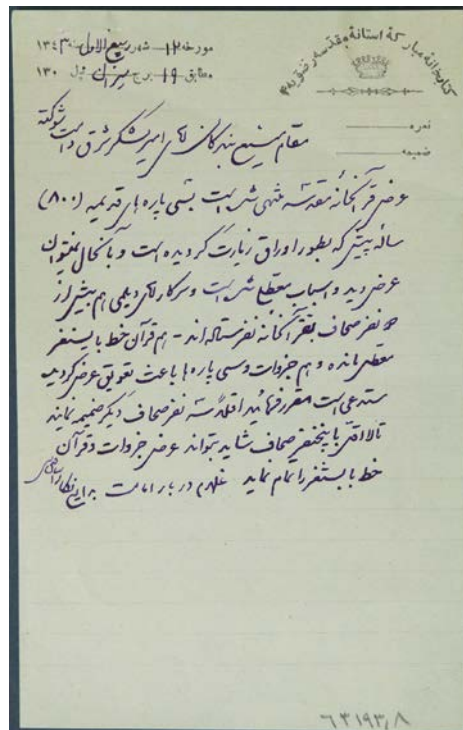 کتابخانه مبارکه آستانه مقدسه رضویه
مورخه ۱۲ شهر ربیع الاول سنه ۱۳۴۳
مطابق ۱۹ برج میزان ئیل ۱۳۰
نمره
ضمیمه
مقام منیع بندگان آقای امیر لشکر شرق دامت شوکته
عرض قرآنخانه مقدسه منتهی شده است بسی پاره های قدیمیه (۸۰۰)
ساله پیش که بطور اوراق زیارت گردیده است و بآنحال نمیتوان
عرض دید و اسباب معطلی شده است و سرکار آقای دیلمی هم بیش از
نفر صحاف بقرآنخانه نفرستاده اند - هم قرآن خط بایسنغر
معطل مانده و هم جزوات و سی پاره ها باعث تعویق عرض گردیده
مستدعی است مقرر فرمائید اقلاً سه نفر صحاف دیگر ضمیمه نمایند
تا لااقل با پنجنفر صحاف شاید بتواند عرض جزوات و قرآن
خط بایسنغر را تمام نماید
۶۳۱۹۳٫۸